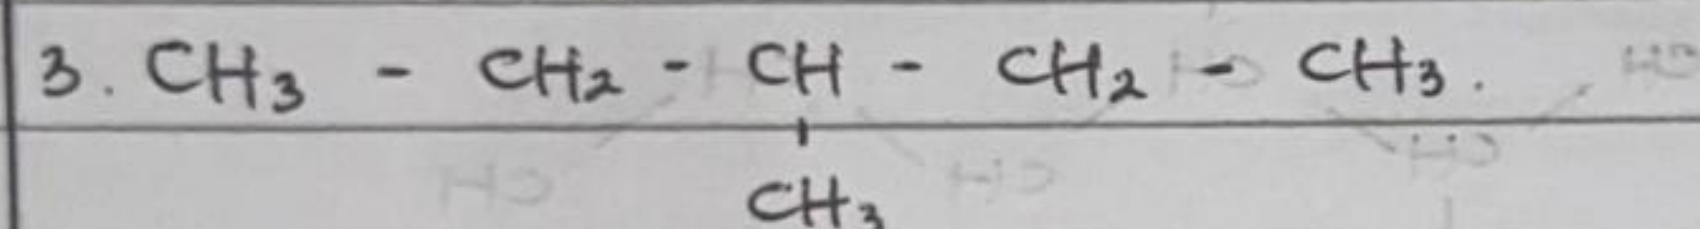 3. CH₃ - CH₂ - CH - CH₂ - CH₃.
CH₃